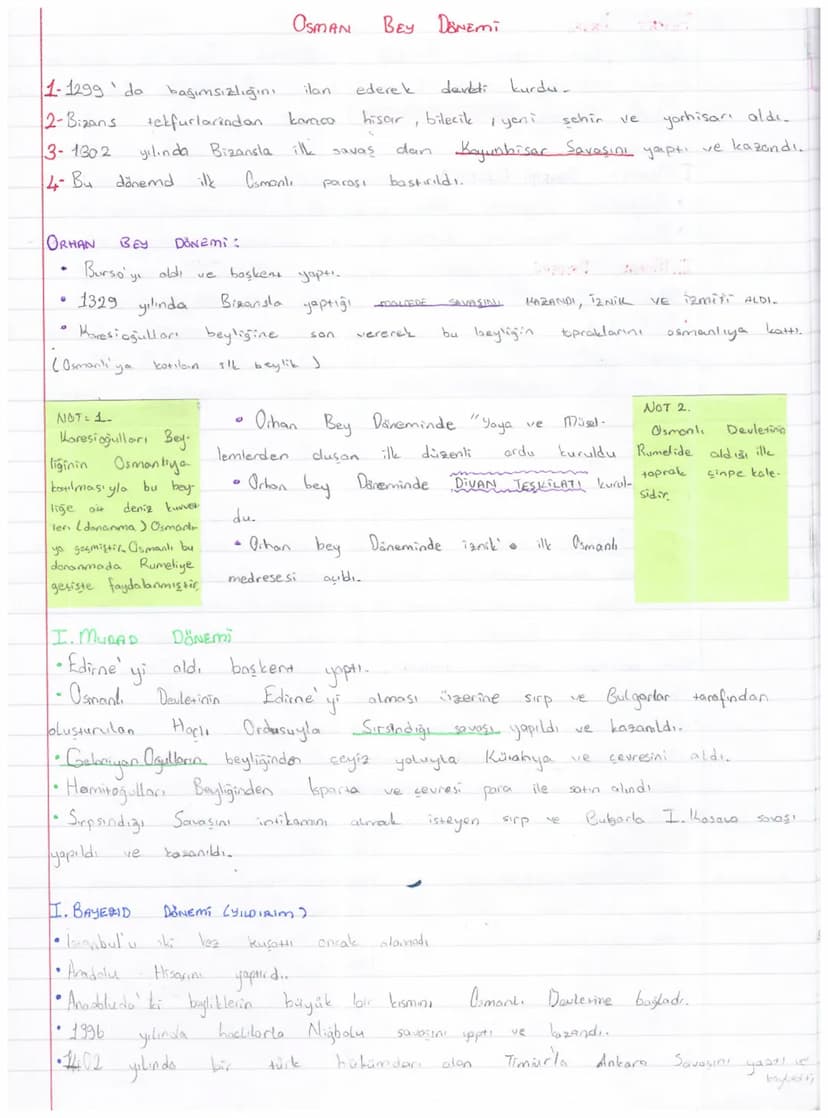 OSMAN BEY DÖNEMİ
1-1299'da bağımsızlığını ilan ederek devleti kurdu.
2-Bizans tekfurlarından karaca hisar, bilecik, yeni şehir ve yarhisarı aldı.
3- 1302 yılında Bizansla ilk savaş olan Koyunhisar Savaşını yaptı ve kazandı.
4- Bu dönemd ilk Osmanlı parası bastırıldı.
ORHAN BEY DÖNEMİ:
• Bursa'yı aldı ve başkent yaptı.
• 1329 yılında Bizansla yaptığı SAVAŞINI KAZANDI, İZNİK VE İZMİTİ ALDI.
• Karesioğulları beyliğine son vererek bu beyliğin topraklarını osmanlıya kattı.
(Osmanlı'ya katılan ilk beylik)
NOT: 1-
Karesioğulları Bey-
liğinin Osmanlıya
katılmasıyla bu bey-
liğe ait deniz kuvvet
leri (donanma) Osmanlı-
ya geçmiştir. Osmanlı bu
donanmada Rumeliye
geçişte faydalanmıştır.
• Orhan Bey Döneminde "Yaya ve Müsel-
lemlerden oluşan ilk düzenli ordu kuruldu
• Orhan bey Döneminde DİVAN TEŞKİLATI kurul-
du.
• Orhan bey Döneminde iznik'e ilk Osmanlı
medresesi açıldı.
NOT 2.
Osmanlı Devletinin
Rumelide aldığı ilk
toprak çinpe kale-
sidir.
I. MURAD DÖNEMİ
• Edirne'yi aldı başkent yaptı.
• Osmanlı Devletinin Edirne'yi alması üzerine sırp ve Bulgarlar tarafından
oluşturulan Haçlı Ordusuyla Sırsındığı savaşı yapıldı ve kazanıldı.
• Germiyan Oğulların beyliğinden çeyiz yoluyla Kütahya ve çevresini aldı.
• Hamitoğulları Beyliğinden Isparta ve çevresi para ile satın alındı
• Sırpsındığı Savaşını intikamını almak isteyen sırp ve Bulgarla I. Kosova savaşı
yapıldı ve kazanıldı.
I. BAYEZID DÖNEMİ (YILDIRIM)
• İstanbul'u iki kez kuşattı ancak alamadı
• Anadolu Hisarını yaptırdı.
• Anadoluda'ki beyliklerin büyük bir kısmını Osmanlı Devletine bağladı.
• 1396 yılında haçlılarla Niğbolu savaşını yaptı ve kazandı.
• 1402 yılında bir türk hükümdarı olan Timur'la Ankara Savaşını yaptı ve
kaybetti